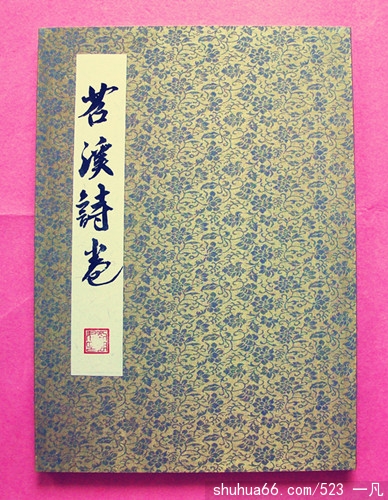 苕溪詩卷
shuhua66.com/523 一凡